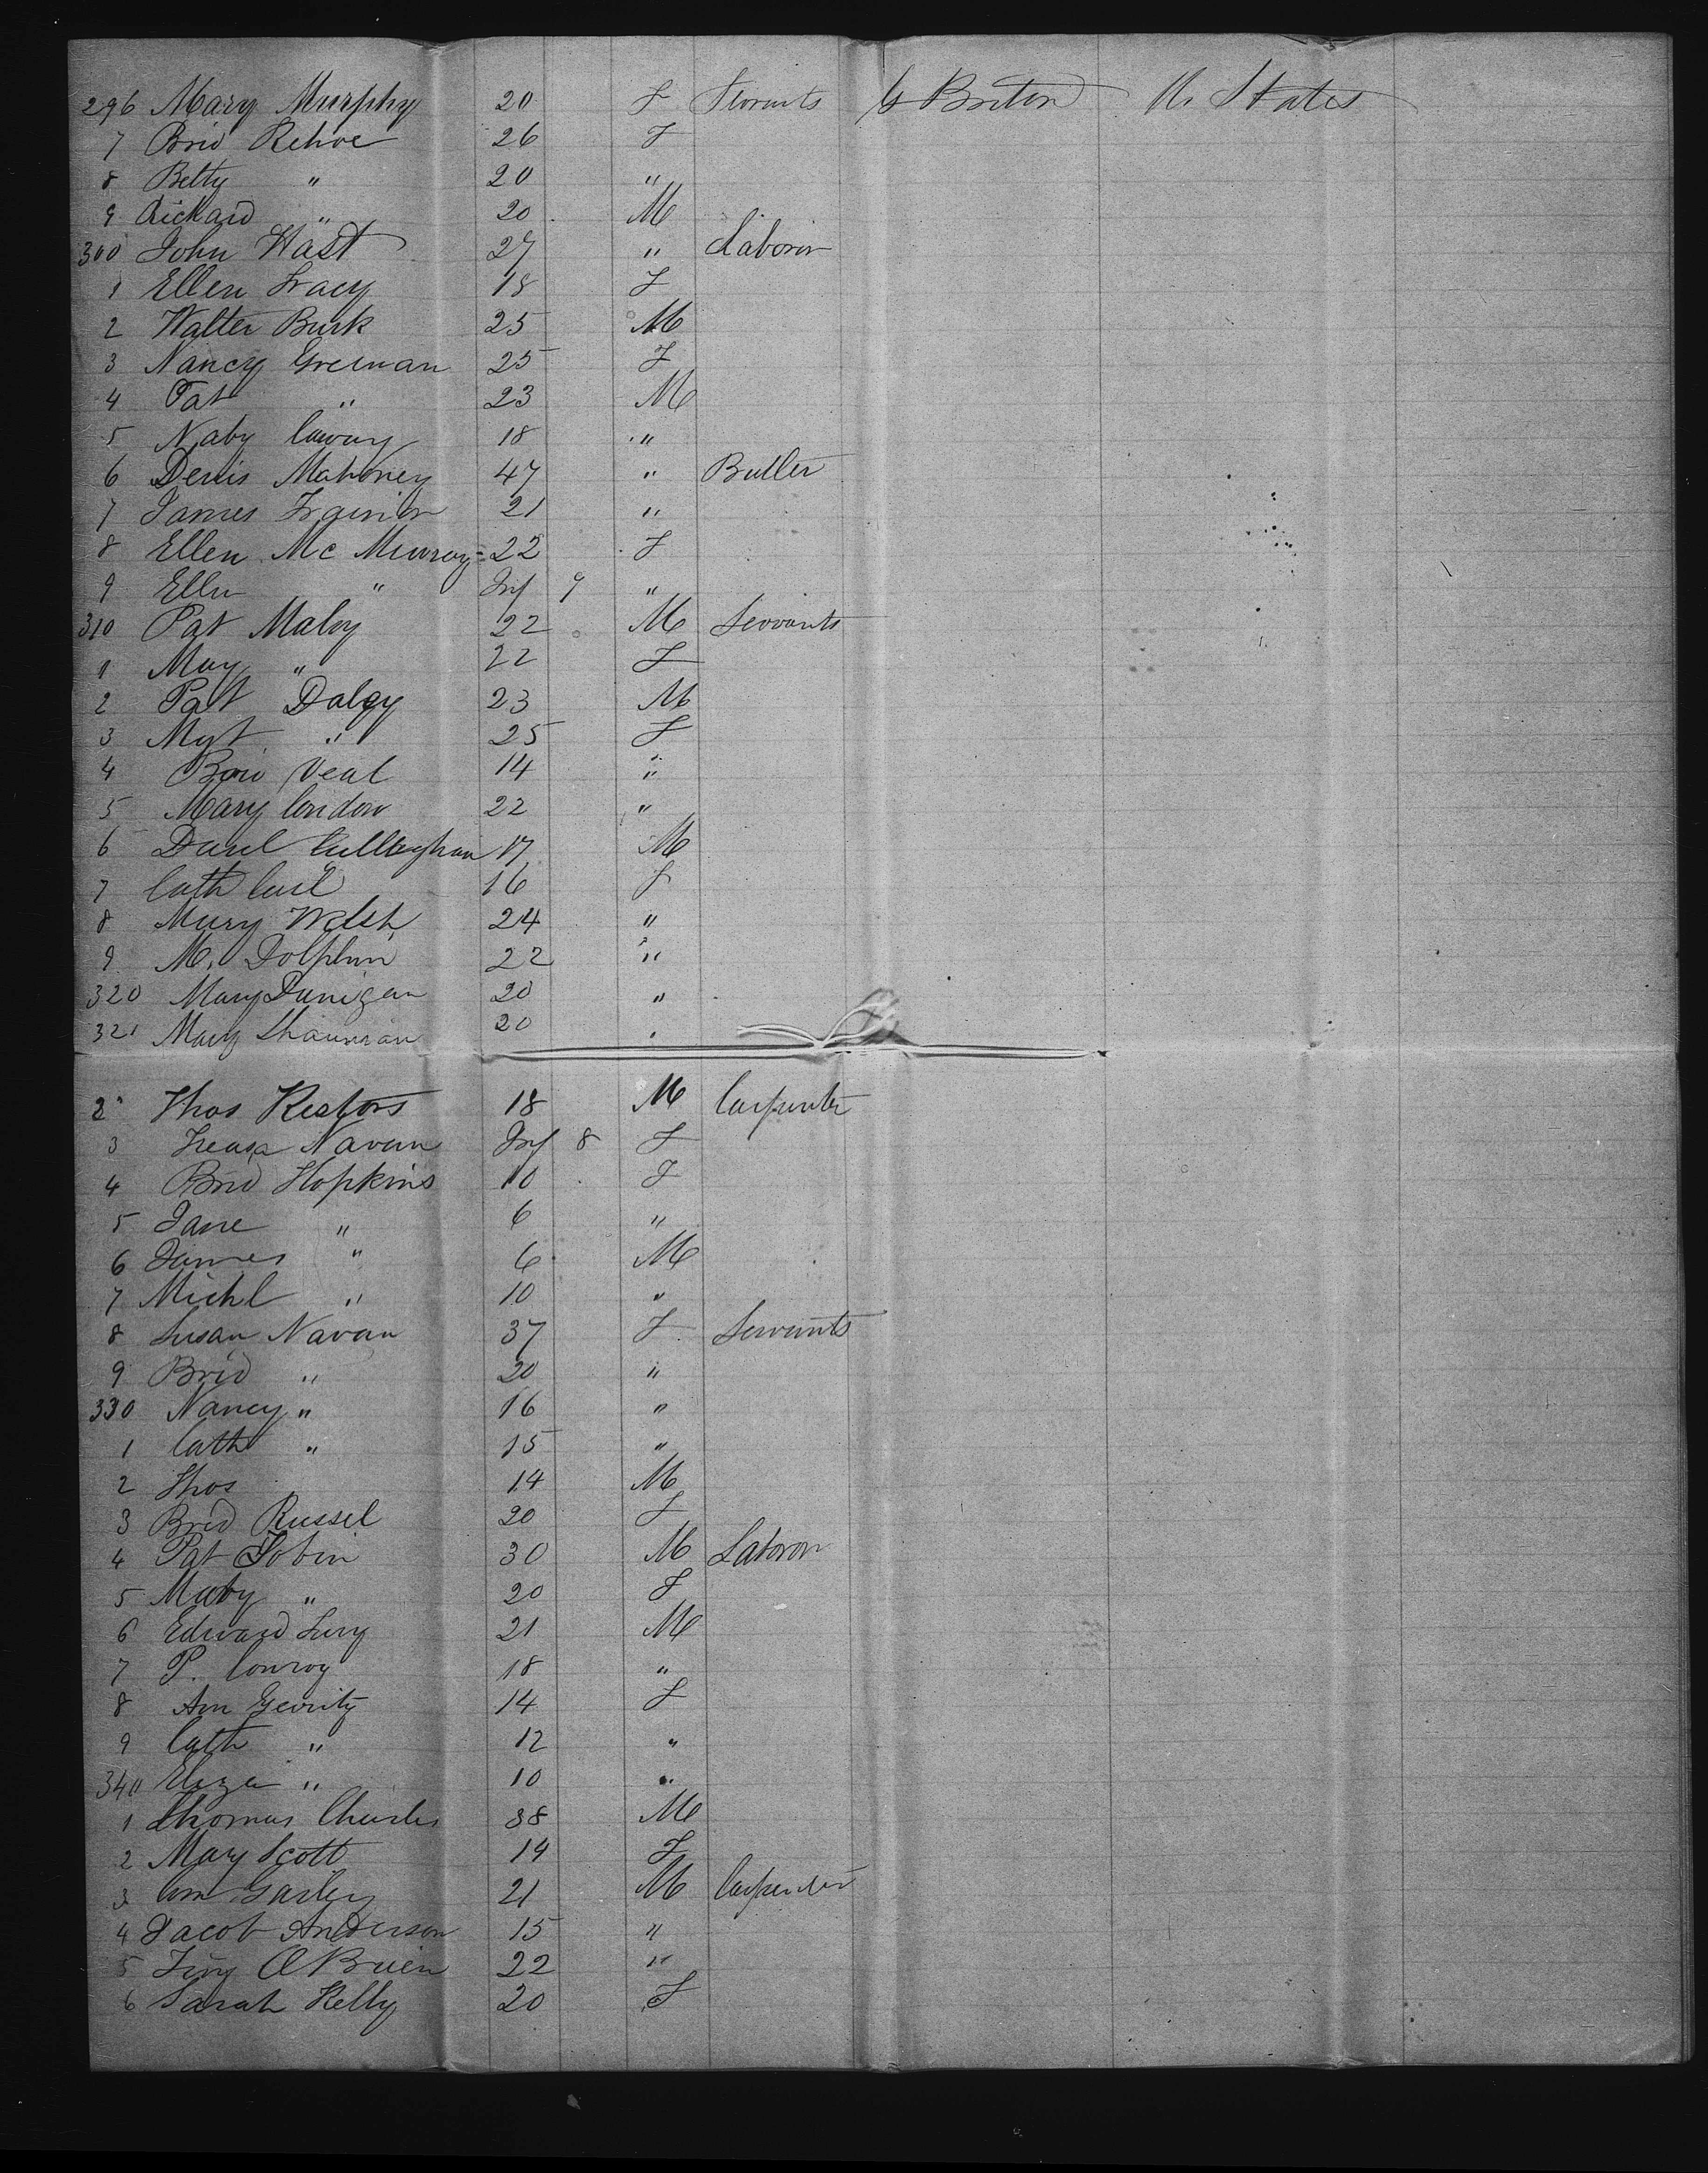 296 Mary Murphy 20 F Servants G Briton U. States
7 Brid Kehoe 26 F
8 Betty " 20 "
9 Richard " 20 M
300 John Hast 27 " Laborer
1 Ellen Tracy 18 F
2 Walter Burk 25 M
3 Nancy Greenan 25 F
4 Pat " 23 M
5 Naby 18 "
6 Denis Mahoney 47 " Butler
7 James Trainor 21 "
8 Ellen Mc Murray 22 F
9 Ellen " Inf 9 "
310 Pat Maloy 22 M Servants
11 May " 22 F
2 Pat Daley 23 M
3 Mgt " 25 F
4 Brid Veal 14 "
5 Mary Condon 22 "
6 Danl Cullaghan 17 M
7 Cath 16 F
8 Mary Welsh 24 "
9 M. Dolphin 22 "
320 Mary Dunigan 20 "
321 Mary Shaunran 20 "
2 Thos 18 M Carpenter
3 Navan Inf 8 F
4 Brid Hopkins 10 F
5 Jane " 6 "
6 James " 6 M
7 Michl " 10 "
8 Susan Navan 37 F Servants
9 Brid " 20 "
330 Nancy " 16 "
1 Cath " 15 "
2 Thos 14 M
3 Brid Russel 20 F
4 Pat Tobin 30 M Laborer
5 Maby " 20 F
6 Edward 21 M
7 P. Conroy 18 "
8 Ann Gerrity 14 F
9 Cath " 12 "
340 Eliza " 10 "
1 Thomas Charles 38 M
2 Mary Scott 14 F
3 Wm 21 M Carpenter
4 Jacob Anderson 15 "
5 O'Brien 22 "
6 Sarah Kelly 20 F